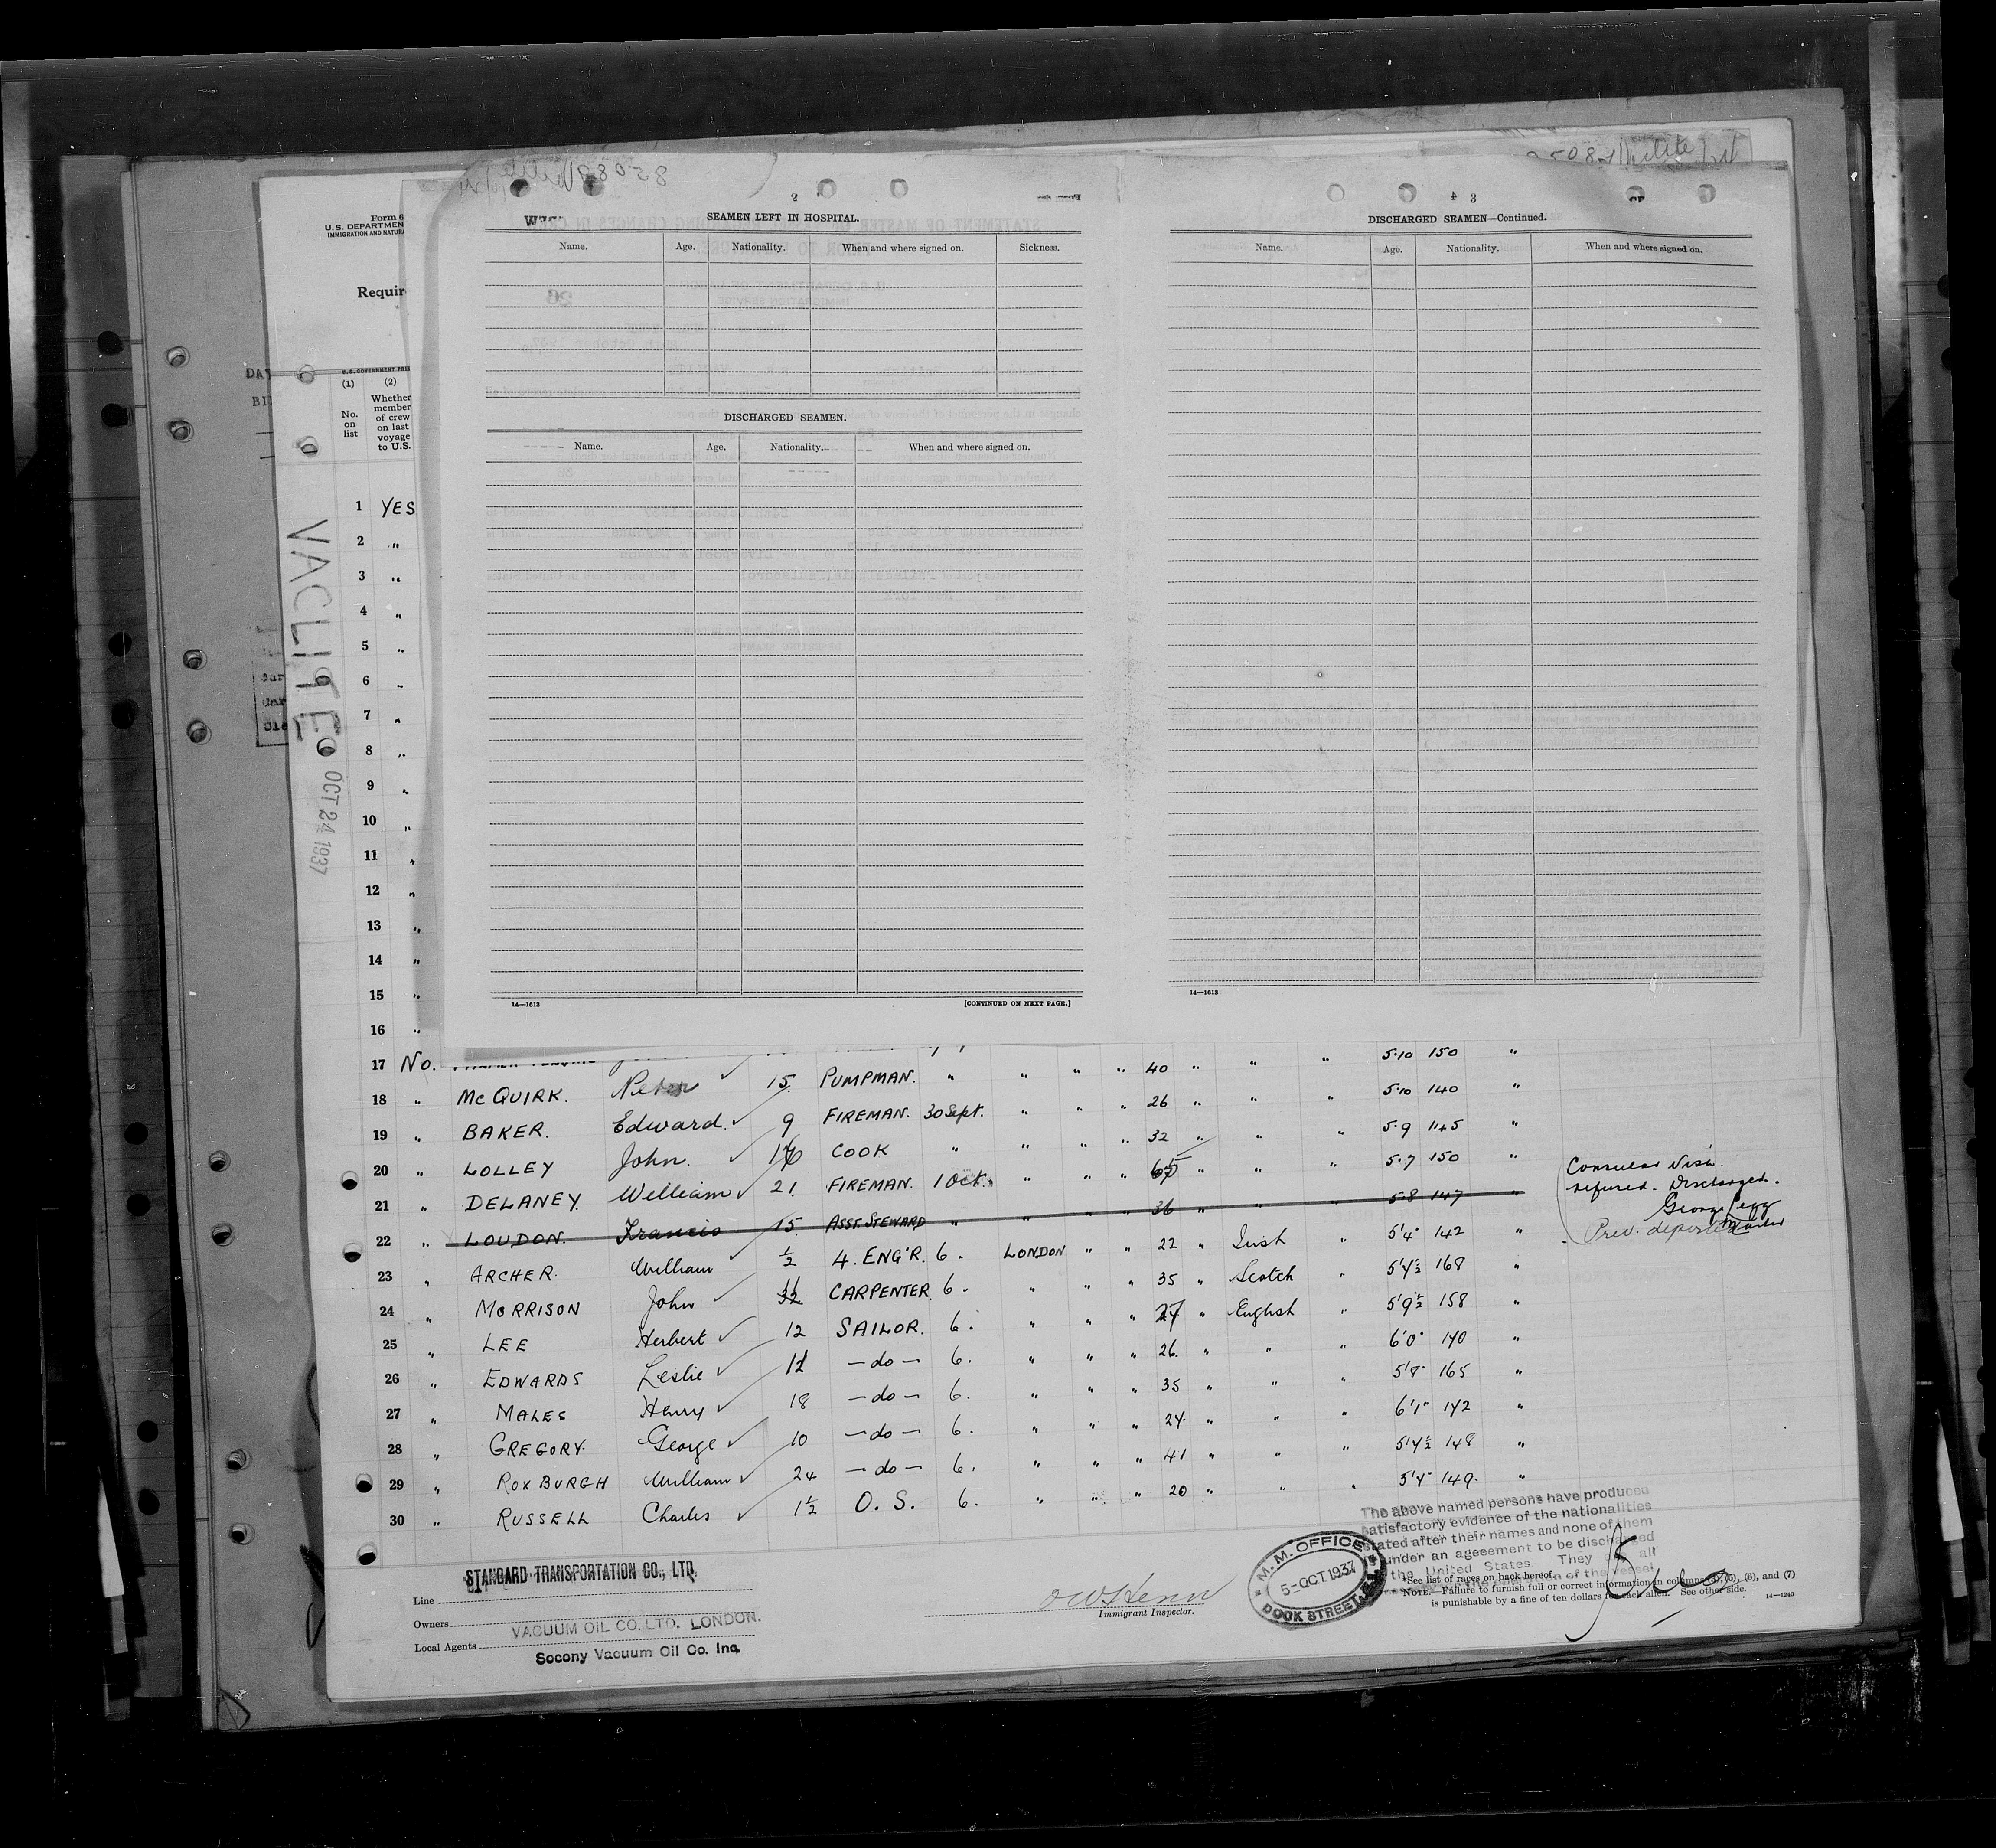 Form 6
U.S. DEPARTMEN
IMMIGRATION AND NATURA
Requir
U.S. GOVERNMENT PRI
(1) (2)
No. on list
Whether member of crew on last voyage to U.S.
VACLITE
OCT 24 1937
2
SEAMEN LEFT IN HOSPITAL.
Name. Age. Nationality. When and where signed on. Sickness.
DISCHARGED SEAMEN.
Name. Age. Nationality. When and where signed on.
14—1613 [CONTINUED ON NEXT PAGE.]
4 3
DISCHARGED SEAMEN—Continued.
Name. Age. Nationality. When and where signed on.
14—1613
1 YES
2 "
3 "
4 "
5 "
6 "
7 "
8 "
9 "
10 "
11 "
12 "
13 "
14 "
15 "
16 "
17 No.
5·10 150 "
18 " McQUIRK. Peter 15 PUMPMAN. " " " " 40 " " " 5·10 140 "
19 " BAKER. Edward 9 FIREMAN. 30 Sept. " " " 26 " " " 5·9 145 "
20 " LOLLEY John. COOK " " " " 32 " " " 5·7 150 "
21 " DELANEY. William 21 FIREMAN. 1 Oct. " " " " " " 5·8 147 "
22 " LOUDON. Francis 15 ASST. STEWARD " " " " 36
23 " ARCHER. William ½ 4. ENG'R. 6. LONDON " " 22 " Irish " 5'4" 142 "
24 " MORRISON John 11 CARPENTER. 6. " " " 35 " Scotch " 168 "
25 " LEE Herbert 12 SAILOR. 6. " " " 27 " English " 5'9½ 158 "
26 " EDWARDS Leslie 11 —do— 6. " " " 26. " " " 6'0" 170 "
27 " MALES Henry 18 —do— 6. " " " 35 " " " 5'8" 165 "
28 " GREGORY. George 10 —do— 6. " " " 24. " " " 6'1" 142 "
29 " ROXBURGH William 24 —do— 6. " " " 41 " " " 5'4½ 148 "
30 " RUSSELL Charles 1½ O. S. 6. " " " 20 " " " 5'4" 149. "
Consular Visa
refused. Discharged.
George Pegg
Master
Prev. deported
The above named persons have produced
satisfactory evidence of the nationalities
stated after their names and none of them
under an ageement to be discharged
the United States They all
of the vessel
M. M. OFFICE
5-OCT 1937
DOCK STREET, E.1.
Line STANDARD TRANSPORTATION CO., LTD.
Owners VACUUM OIL CO. LTD. LONDON.
Local Agents Socony Vacuum Oil Co. Inc.
Immigrant Inspector.
*See list of races on back hereof.
NOTE.—Failure to furnish full or correct information in columns (5), (6), and (7)
is punishable by a fine of ten dollars for each alien. See other side. 14—1240